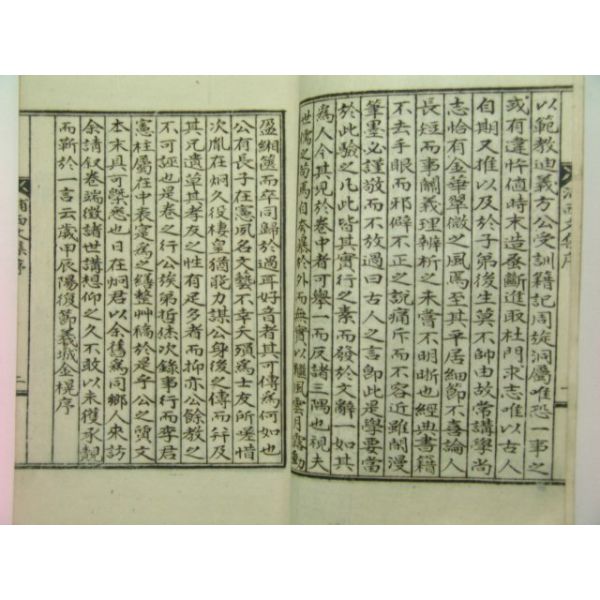 以範教迪義方公受訓籍記周旋洞屬唯恐一事之
或有違忤値時末造蚤斷進取杜門求志唯以古人
自期又推以及於子弟後生莫不師由故常講學尚
志恰有金華翠微之風焉至其平居細節不喜論人
長短而事關義理辨析之未嘗不明晰也經典書籍
不去手眼而邪僻不正之說痛斥而不容近雖閒漫
筆墨必謹敬而不放過曰古人之言卽此是學要當
於此驗之凡此皆其實行之素而發於文辭一如其
爲人今其見於卷中者可擧一而反諸三隅也視夫
世儒之苟爲自夸張於外而無實以驅風雲月露動
盈緗篋而卒同歸於過耳好音者其可傳爲何如也
公有長子在憲夙名文藝不幸夭殞爲士友所嗟惜
次胤在炯久役棲皇猶能力謀公身後之傳而幷及
其兄遺草其孝友之性有足多者而抑亦公餘敎之
不可誣也是卷之行公族弟哲洙次錄事行而李君
憲柱屬在中表寔爲之繕整艸稿於是乎公之質文
本末具可槩悉也日在炯君以余舊爲同鄕人來訪
余請叙卷端徵諸世講想仰之久不敢以未獲承覿
而靳於一言云歲甲辰陽復節義城金榥序